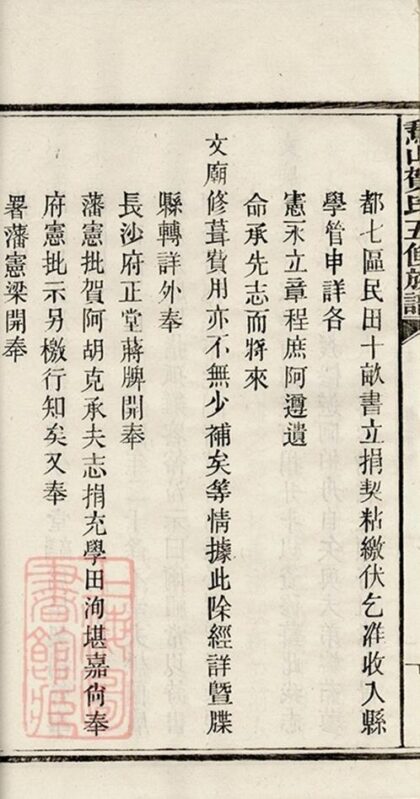 都七區民田十畝書立捐契粘繳伏乞准收入縣
學管申詳各
憲永立章程庶阿遵遺
命承先志而將來
文廟修葺費用亦不無少補矣等情據此除經詳暨牒
縣轉詳外奉
長沙府正堂蔣牌開奉
藩憲批賀阿胡克承夫志捐充學田洵堪嘉尙奉
府憲批示另檄行知矣又奉
署藩憲梁開奉
上海圖書館藏
賀氏五修族譜